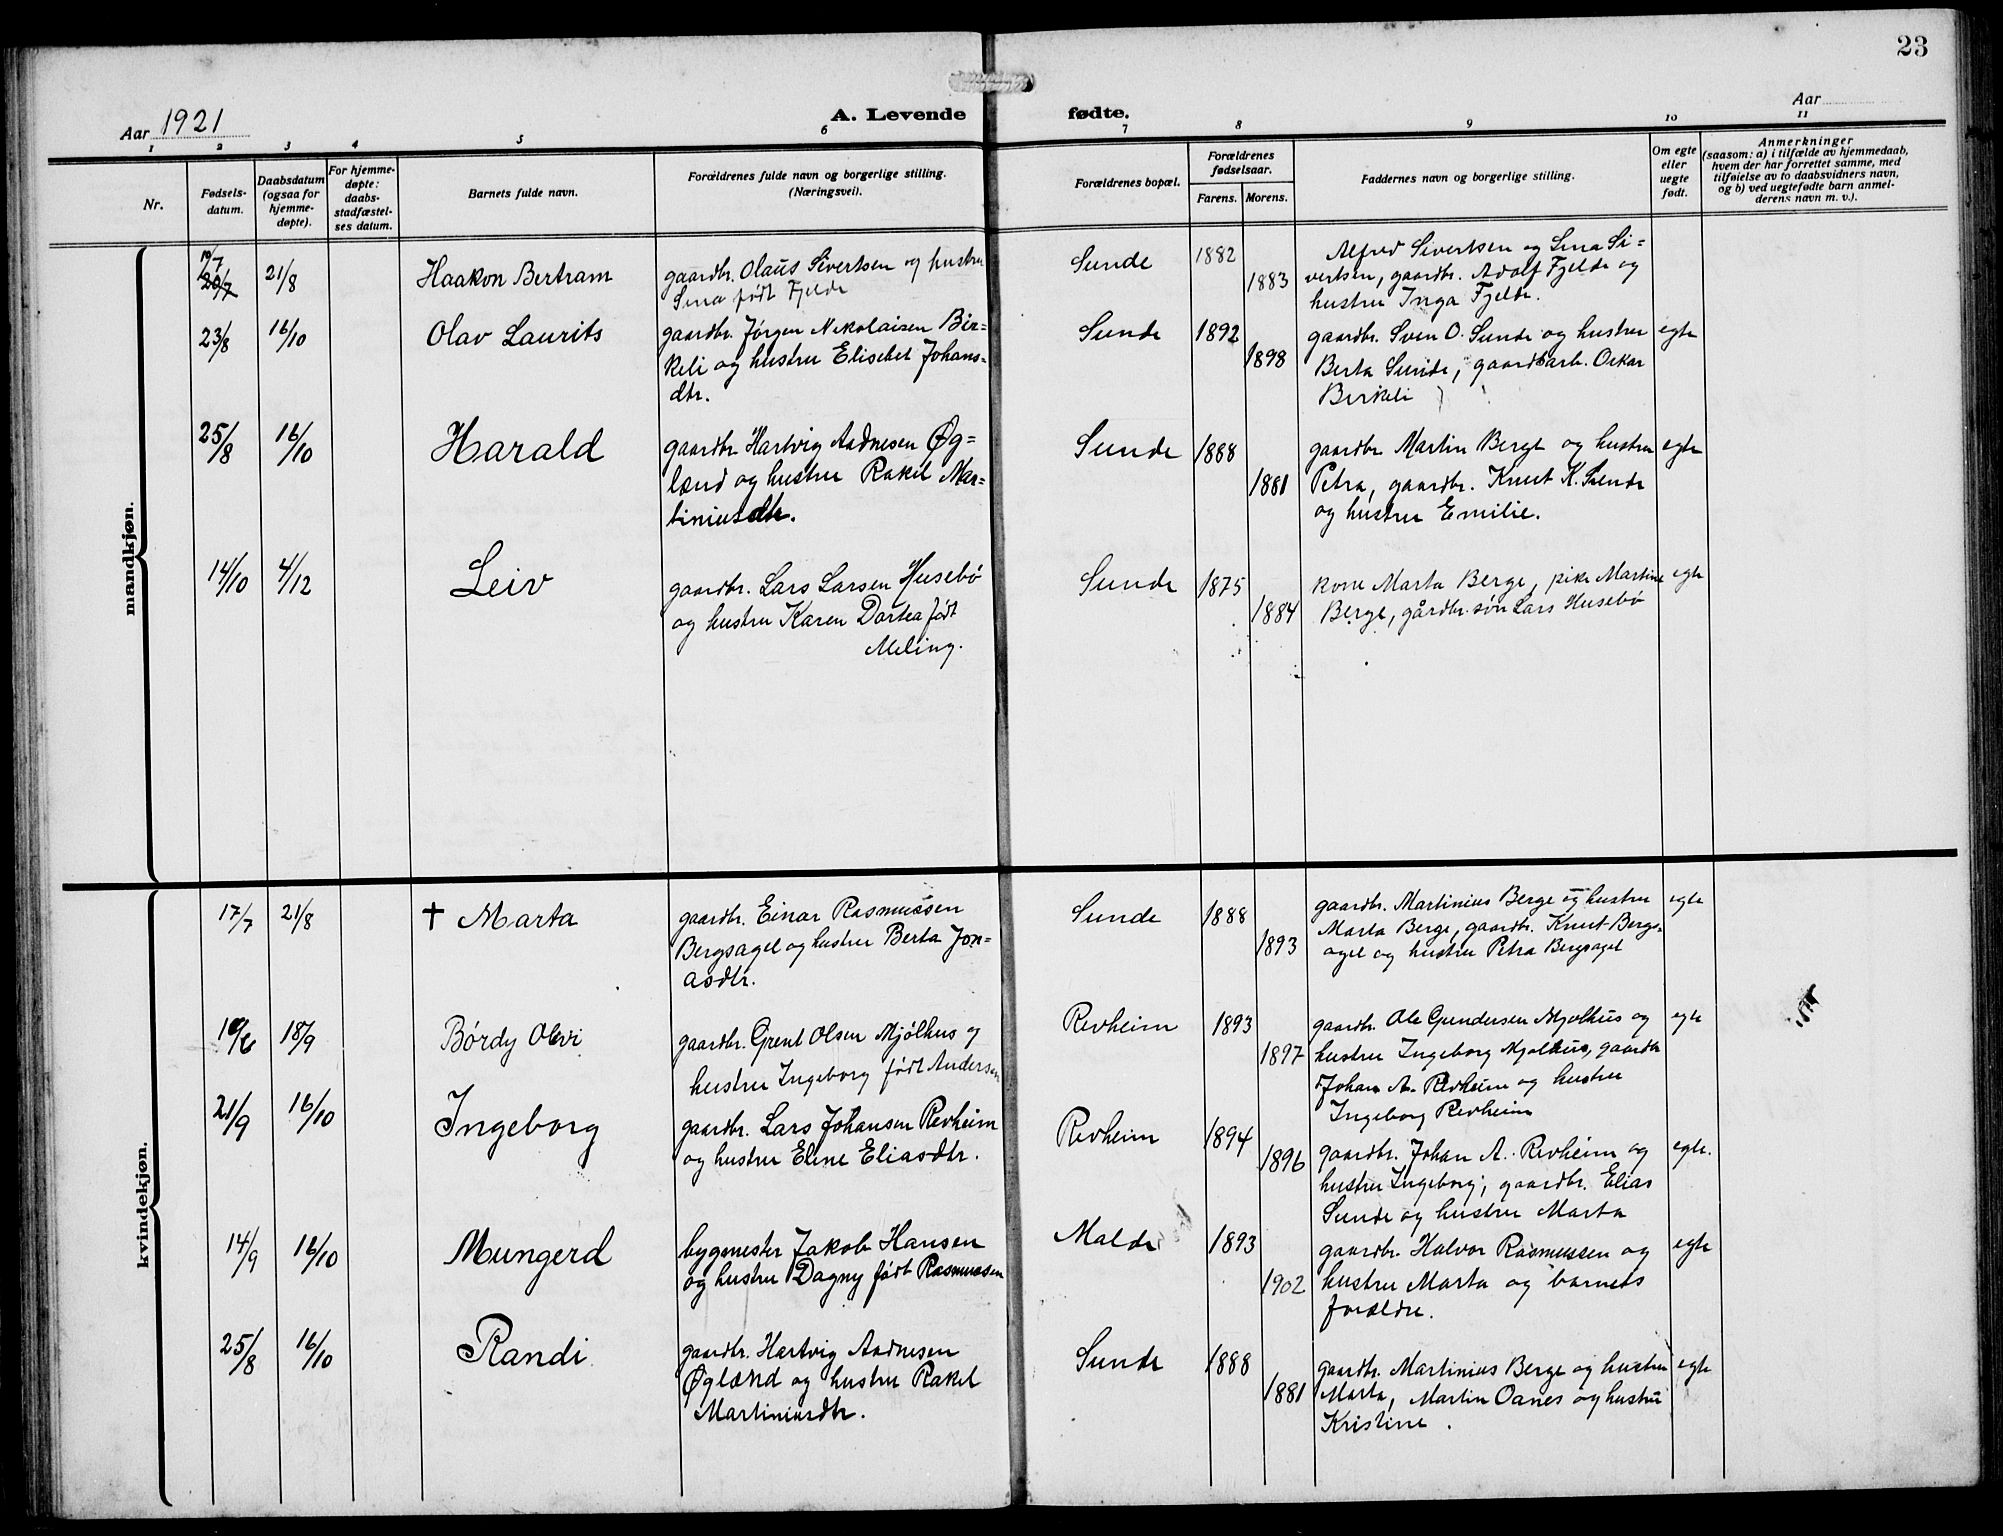 23
Aar 1921
A. Levende fødte.
Aar
1 2 3 4 5 6 7 8 9 10 11
Nr.
Fødsels-
datum.
Daabsdatum
(ogsaa for
hjemme-
døpte).
For hjemme-
døpte:
daabs-
stadfæstel-
ses datum.
Barnets fulde navn.
Forældrenes fulde navn og borgerlige stilling.
(Næringsvei).
Forældrenes bopæl.
Forældrenes
fødselsaar.
Farens. Morens.
Faddernes navn og borgerlige stilling.
Om egte
eller
uegte
født.
Anmerkninger
(saasom: a) i tilfælde av hjemmedaab,
hvem der har forrettet samme, med
tilføielse av to daabsvidners navn,
og b) ved uegtefødte barn anmel-
derens navn m. v.).
mandkjøn.
20/7 21/8 Haakon Bertram
gaardbr. Olaus Sivertsen og hustru
Sina født Fjelde
Sunde 1882 1883
Alfred Sivertsen og Sina Si=
vertsen, gaardbr. Adolf Fjelde og
hustru Inga Fjelde.
23/8 16/10 Olav Laurits
gaardbr. Jørgen Nikolaisen Bir=
keli og hustru Elisebet Johans=
dtr.
Sunde 1892 1898
gaardbr. Sven O. Sunde og hustru
Berta Sunde, gaardbarb. Oskar
Birkeli
egte
25/8 16/10 Harald
gaardbr. Hartvig Aadnesen Øg=
lænd og hustru Rakel Mar=
tiniusdtr.
Sunde 1888 1881
gaardbr. Martin Berge og hustru
Petra, gaardbr. Knut K. Sunde
og hustru Emilie.
egte
14/10 4/12 Leiv
gaardbr. Lars Larsen Husebø
og hustru Karen Dortea født
Meling.
Sunde 1875 1884
kone Marta Berge, pike Martine
Berge, gårdbr. søn Lars Husebø
egte
kvindekjøn.
17/7 21/8 † Marta
gaardbr. Einar Rasmussen
Bergsagel og hustru Berta Jon=
asdtr.
Sunde 1888 1893
gaardbr. Martinius Berge og hustru
Marta Berge, gaardbr. Knut Bergs=
agel og hustru Petra Bergsagel
egte
18/9 Børdy
gaardbr. Grent Olsen Mjølhus og
hustru Ingeborg født Andersen
Revheim 1893 1897
gaardbr. Ole Gundersen Mjølhus og
hustru Ingeborg Mjølhus, gaardbr
Johan A. Revheim og hustru
Ingeborg Revheim
egte
21/9 16/10 Ingeborg
gaardbr. Lars Johansen Revheim
og hustru Eline Eliasdtr.
Revheim 1894 1896
gaardbr. Johan A. Revheim og
hustru Ingeborg, gaardbr. Elias
Sunde og hustru Marta
egte.
14/9 16/10 Mungerd
bygmester Jakob Hansen
og hustru Dagny født Rasmussen
Malde 1893 1902
gaardbr. Halvor Rasmussen og
hustru Marta og barnets
forældre.
egte
25/8 16/10 Randi
gaardbr. Hartvig Aadnesen
Øglænd og hustru Rakel
Martiniusdtr.
Sunde 1888 1881
gaardbr. Martinius Berge og hustru
Marta, Martin Oanes og hustru
Kristine.
egte